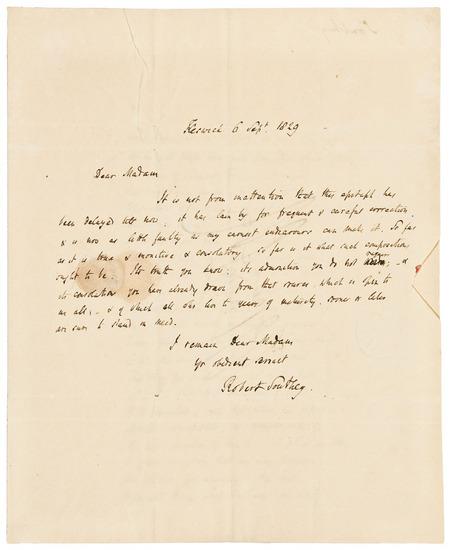 Keswick 6 Sept. 1829
Dear Madam
It is not from inattention that this epitaph has
been delayed till now; it has lain by for frequent & careful correction,
& is now as little faulty as my earnest endeavours can make it. So far
as it is true & monitive & consolatory, so far is it what such compositions
ought to be. Its truth you know; its admonition you do not require; - &
its consolations you have already drawn from that source which is open to
us all; - & of which all who live to years of maturity, sooner or later
are sure to stand in need.
I remain Dear Madam
Yr obedient servant
Robert Southey.